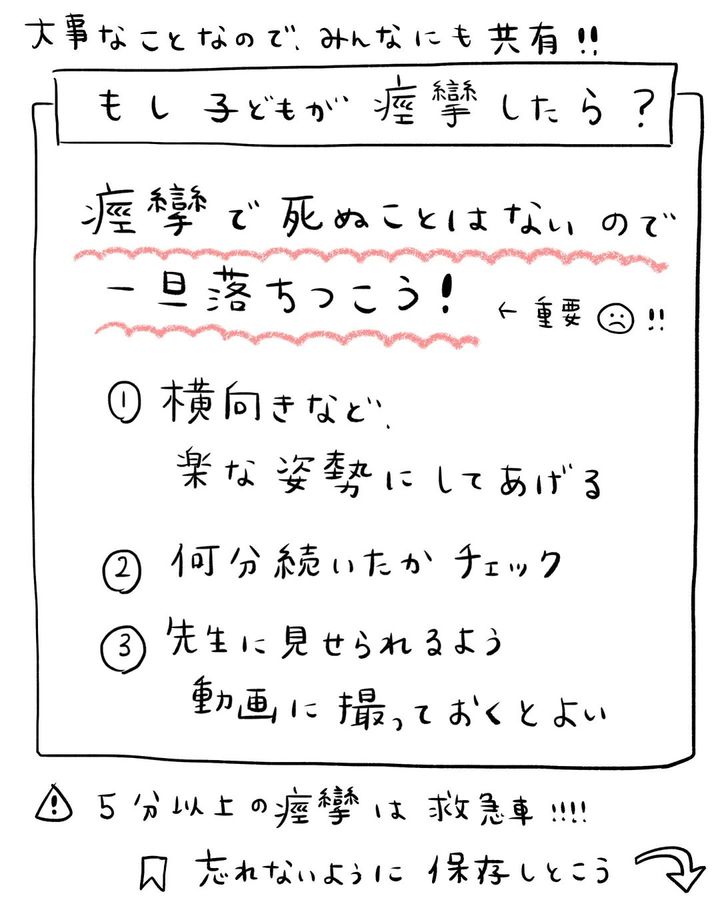 大事なことなので、みんなにも共有!!
もし子どもが痙攣したら?
痙攣で死ぬことはないので
一旦落ちつこう!
← 重要 !!
① 横向きなど、
楽な姿勢にしてあげる
② 何分続いたかチェック
③ 先生に見せられるよう
動画に撮っておくとよい
⚠ 5分以上の痙攣は救急車!!!!
忘れないように保存しとこう